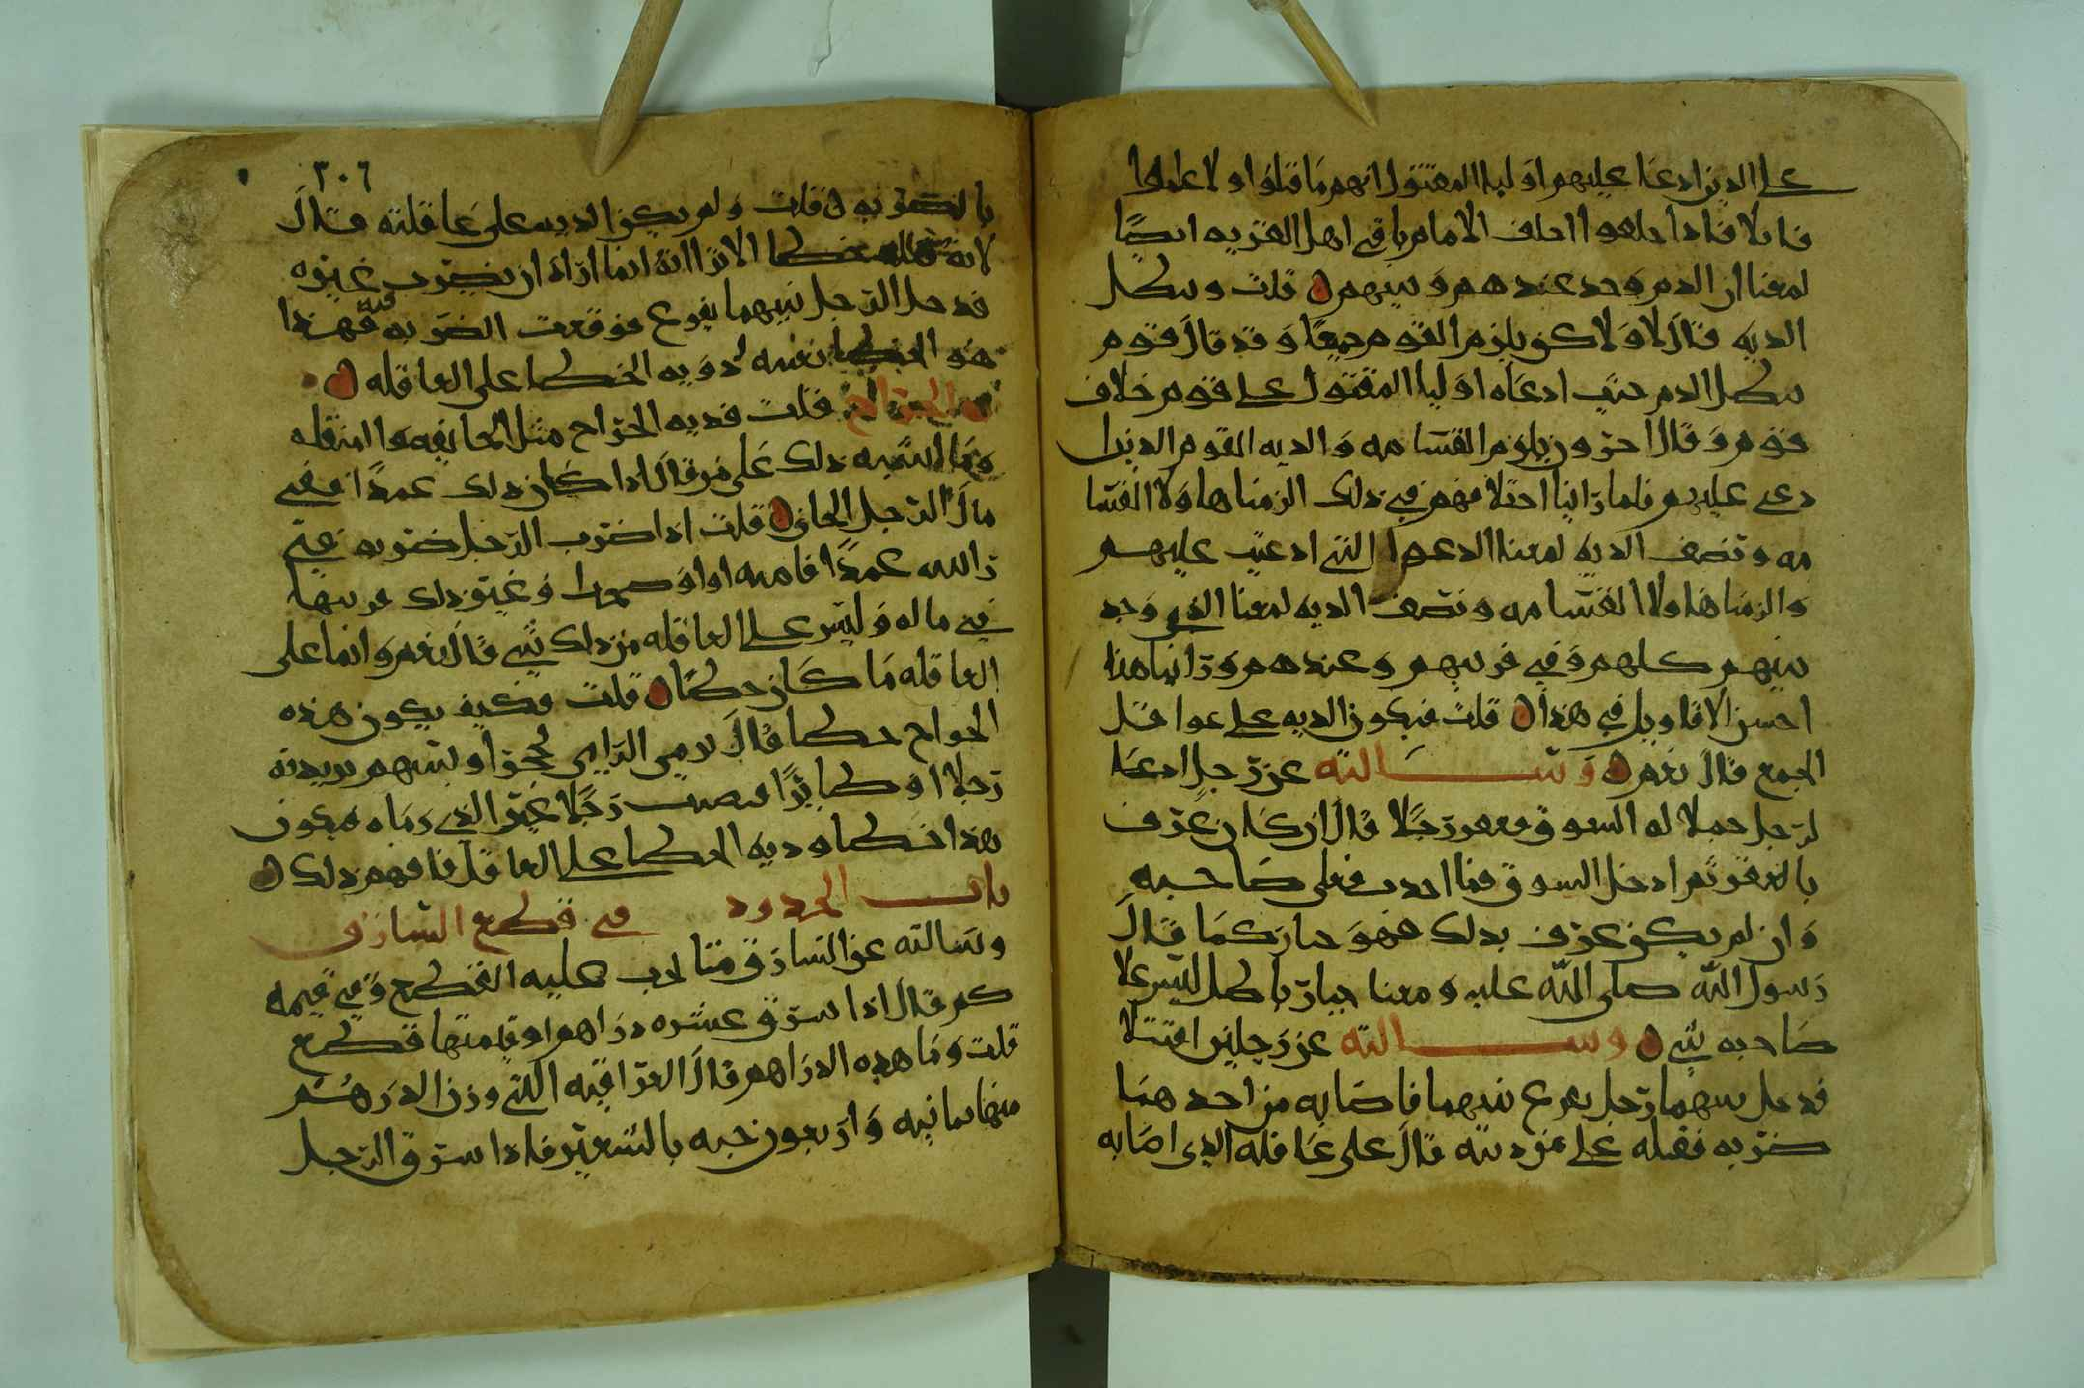 على الذين ادعا عليهم اوليا المقتول انهم ما قتلوا ولا علموا
قاتلا فاذا حلفوا احلف الامام باقي اهل القريه ايضًا
لمعنا ان الدم وجد عندهم وبينهم ه قلت وتبطل
الديه قال لا ولاكن يلزم القوم جميعًا وقد قال قوم
يبطل الدم حتى ادعاه اوليا المقتول على قوم خلاف
قوم وقال اخرون يلزم القسامه والديه القوم الذين ا
دعي عليهم فلما راينا اختلافهم في ذلك الزمنا هاولا القسا
مه ونصف الديه لمعنا الدعوا التي ادعيت عليهم
والزمنا هاولا القسامه ونصف الديه لمعنا الذي وجد
بينهم كلهم وفي قريتهم وعندهم وراينا هذا
احسن الاقاويل في هذا ه قلت فيكون الديه على عواقل
الجميع قال نعم ه وسالته عن رجل ادعا
لرجل جملا له السوق فعقر رجلا قال ان كان عرف
بالعقر ثم ادخل السوق فما احدث فعلى صاحبه
وان لم يكن عرف بذلك فهو جبار كما قال
رسول الله صلى الله عليه ومعنا جبار باطل ليس على
صاحبه شي ه وسالته عن رجلين اقتتلا
فدخل بينهما رجل يفرع بينهما فاصابه من احدهما
ضربه فقتله على من ديته قال على عاقله الذي اصابه
٣٠٦
بالضربه ه قلت ولم يكن الديه على عاقلته قال
لانه خطا الا ترا انه انما اراد ان يضرب غيره
فدخل الرجل بينهما يفرع فوقعت الضربه فيه فهذا
هو الخطا نفسه وديه الخطا على العاقله ه
قلت فديه الجراح مثل الجايفه والمنقله
وما اشبه ذلك على من قال اذا كان ذلك عمدًا ففي
مال الرجل الجاني ه قلت اذا ضرب الرجل ضربه غير
راسه عمدًا فامه او اوضحه او غير ذلك قريبها
في ماله وليس على العاقله من ذلك شي قال نعم وانما على
العاقله ما كان خطًا ه قلت فكيف يكون هذه
الجراح خطا قال يرمي الرامي بحجر او بسهم يريد به
رجلا او طايرًا فيصيب رجلا غير الذي رماه فيكون
هذا خطا وديه الخطا على العاقله فافهم ذلك ه
باب الحدود في قطع السارق
وسالته عن السارق متا يجب عليه القطع وفي قيمه
كم قال اذا سرق عشره دراهم او قيمتها قطع
قلت وما هذه الدراهم قال العراقيه التي وزن الدرهم
منها ثمانيه واربعون حبه بالشعير فاذا سرق الرجل